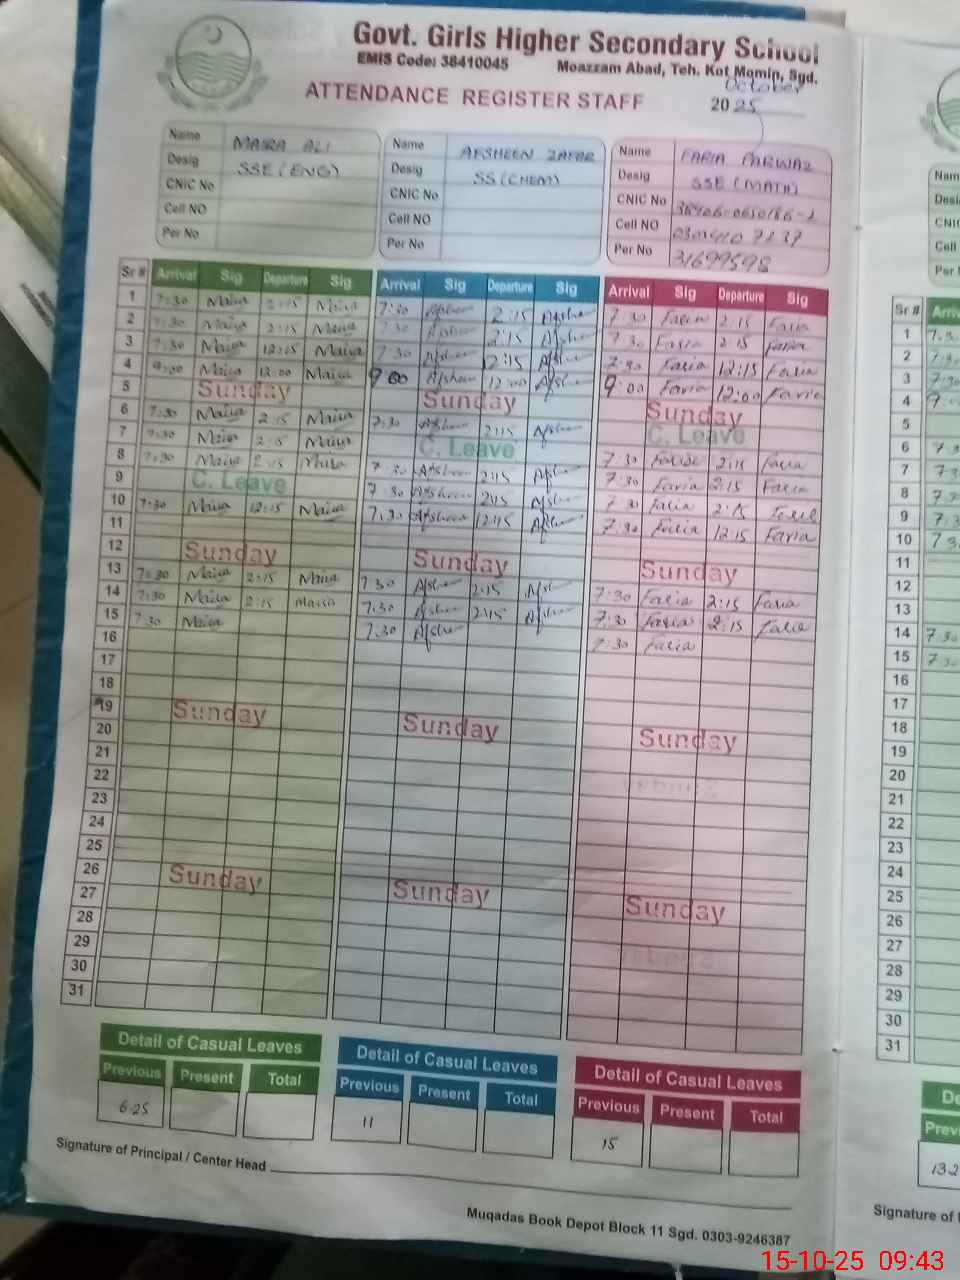 Govt. Girls Higher Secondary School
EMIS Code: 38410045 Moazzam Abad, Teh. Kot Momin, Sgd.
October
ATTENDANCE REGISTER STAFF 2025
Name MAIRA ALI Name AFSHEEN ZAFAR Name FARIA PARWAZ
Desig SSE (ENG) Desig SS (CHEM) Desig SSE (MATH)
CNIC No CNIC No CNIC No
Cell NO Cell NO Cell NO
Per No Per No Per No 31699598
Sr # Arrival Sig Departure Sig Arrival Sig Departure Sig Arrival Sig Departure Sig
1 7:30 Maira 2:15 Maira 7:30 Afshe 2:15 Afshe 7:30 Faria 2:15 Faria
2 7:30 Maira 2:15 Maira 7:30 Afshe 2:15 Afshe 7:30 Faria 2:15 Faria
3 7:30 Maira 12:15 Maira 7:30 Afshe 2:15 Afshe 7:30 Faria 12:15 Faria
4 9:00 Maira 12:00 Maira 9:00 Afsheen 12:00 Afshe 9:00 Faria 12:00 Faria
5 Sunday Sunday Sunday
6 7:30 Maira 2:15 Maira 7:30 Afshe 2:15 Afshe C. Leave
7 7:30 Maira 2:15 Maira C. Leave 7:30 Faria 2:15 Faria
8 7:30 Maira 2:15 Maira 7:30 Afsheen 2:15 Afshe 7:30 Faria 2:15 Faria
9 C. Leave 7:30 Afsheen 2:15 Afshe 7:30 Faria 2:15 Faria
10 7:30 Maira 12:15 Maira 7:30 Afsheen 12:15 Afshe 7:30 Faria 12:15 Faria
11
12 Sunday Sunday Sunday
13 7:30 Maira 2:15 Maira 7:30 Afshe 2:15 Afshe 7:30 Faria 2:15 Faria
14 7:30 Maira 2:15 Maria 7:30 Afshe 2:15 Afshe 7:30 Faria 2:15 Faria
15 7:30 Maira 7:30 Afshe 7:30 Faria
16
17
18
19 Sunday Sunday Sunday
20
21
22
23
24
25
26 Sunday Sunday Sunday
27
28
29
30
31
Detail of Casual Leaves Detail of Casual Leaves Detail of Casual Leaves
Previous Present Total Previous Present Total Previous Present Total
6.25 11 15
Signature of Principal / Center Head
Muqadas Book Depot Block 11 Sgd. 0303-9246387
Sr #
1
2
3
4
5
6
7
8
9
10
11
12
13
14 7:30
15 7:30
16
17
18
19
20
21
22
23
24
25
26
27
28
29
30
31
Signature of
15-10-25 09:43